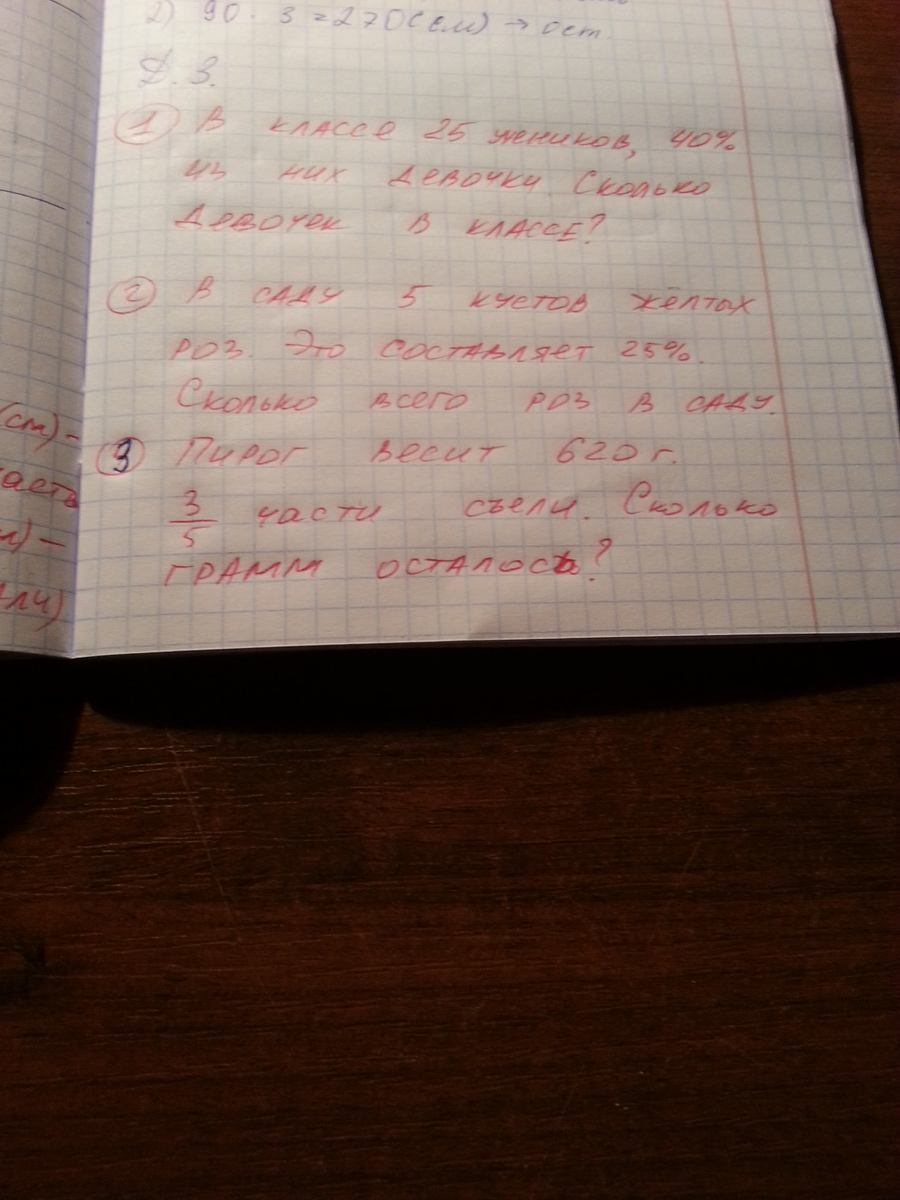 2) 90 · 3 = 270 (см) → ост.
Д. З.
1 В классе 25 учеников, 40%
из них девочки. Сколько
девочек в классе?
2 В саду 5 кустов жёлтых
роз. Это составляет 25%.
Сколько всего роз в саду.
3 Пирог весит 620 г.
3/5 части съели. Сколько
грамм осталось?
(см) –
асть
) –